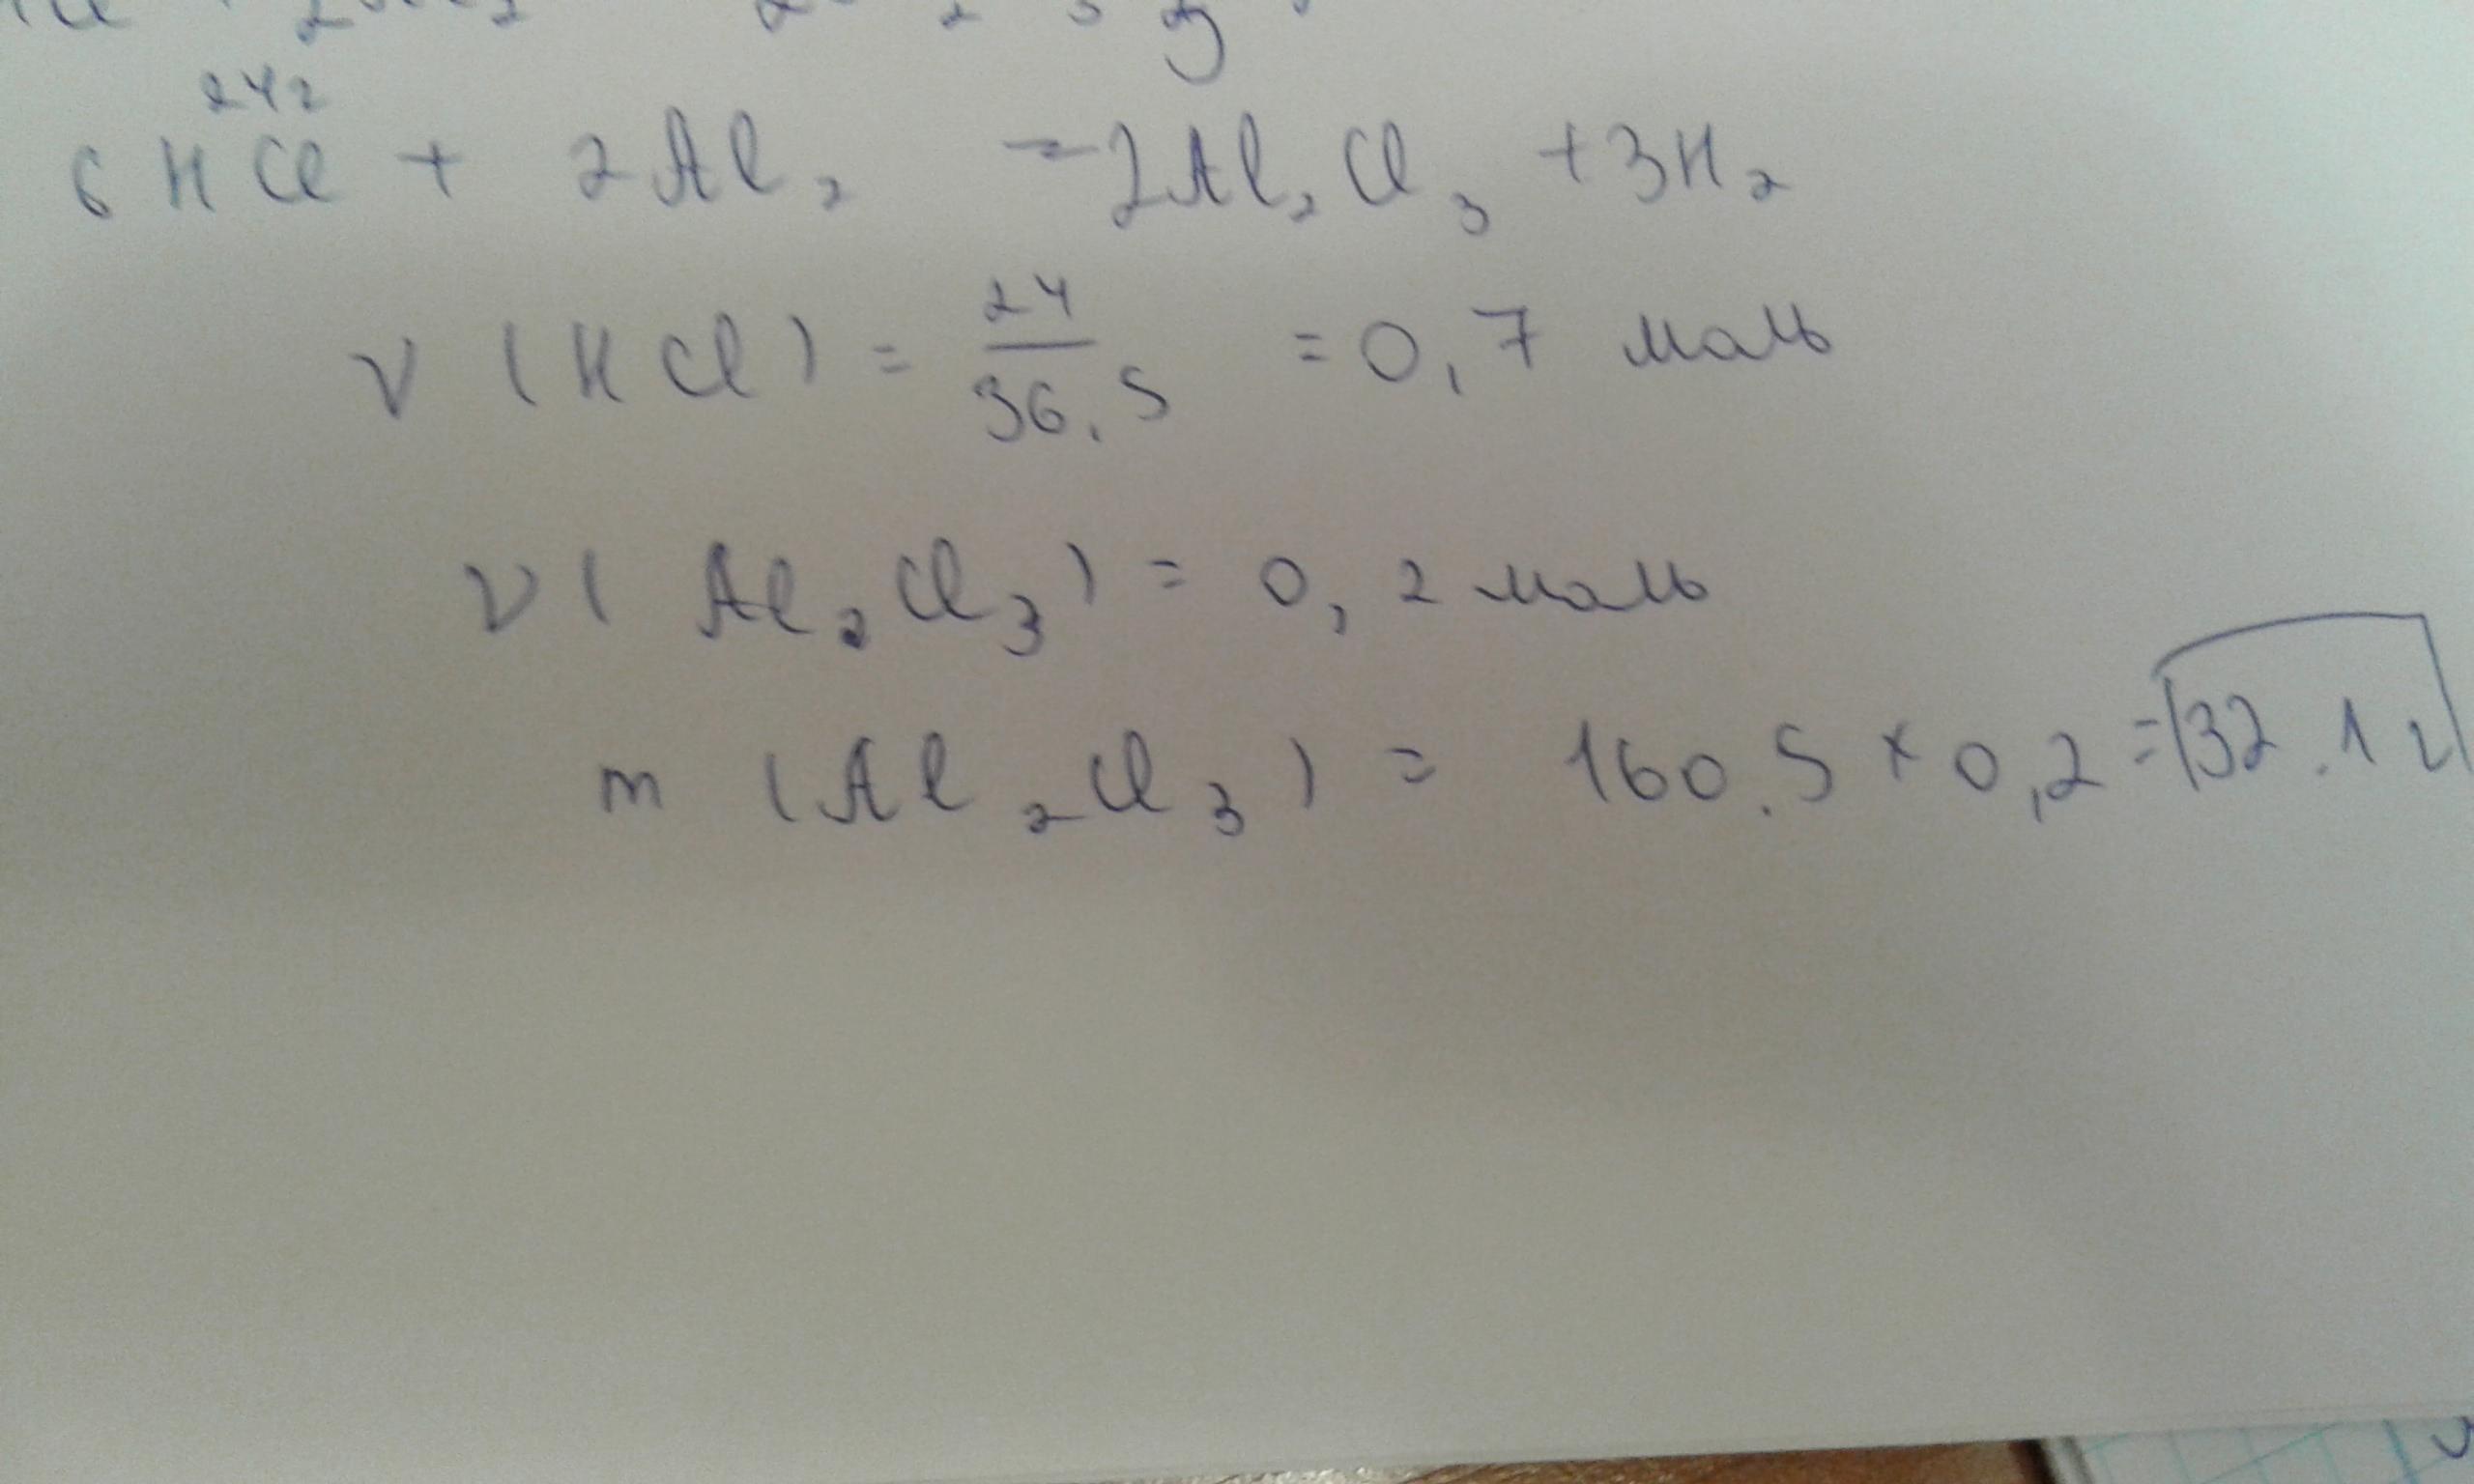 24г
6HCl + 2Al₂ = 2Al₂Cl₃ + 3H₂
ν (HCl) = 24/36.5 = 0,7 моль
ν (Al₂Cl₃) = 0,2 моль
m (Al₂Cl₃) = 160.5 × 0,2 = 32.1 г